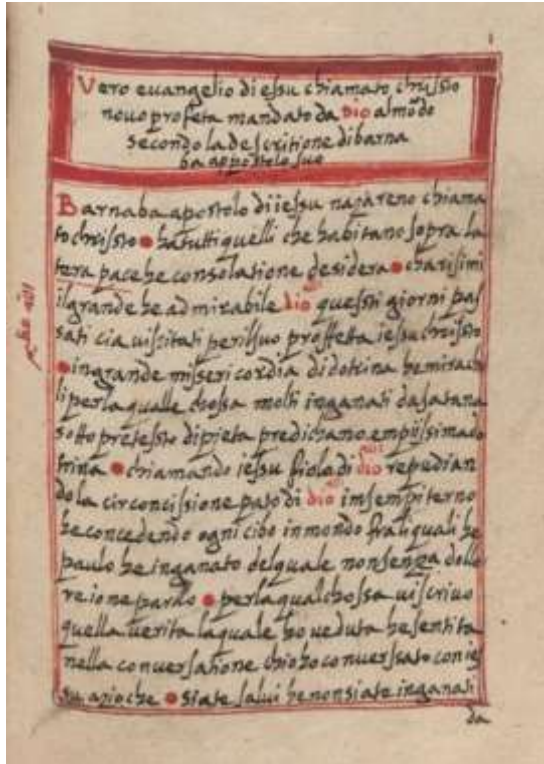 1
Vero euangelio di essu chiamato chrissto
nouo profeta mandato da DIO almōdo
secondo la descritione di barna
ba appostolo suo
Barnaba apostolo di iessu nazareno chiama
to chrissto ha tutti quelli che habitano sopra la
tera pace he consolatione desidera charisimi
il grande he admirabile dio quessti giorni pas
sati cia uissitati per il suo proffetta iessu chrissto
in grande misseri cordia di dotrina he mirach
li per la qualle chossa molti inganati da satana
sotto pretessto di pieta predichano empiissima do
trina chiamando iessu fiolo di dio repedian
do la circoncissione pato di dio in sempiterno
he concedendo ogni cibo inmondo frali quali he
paulo he inganato del quale non senza dollo
re ione parlo per la qual chossa ui scriuo
quella uerita la quale ho ueduta he sentita
nella conuersatione chio ho conuerssato con ies
su azio che siate salui he non siate inganati
da